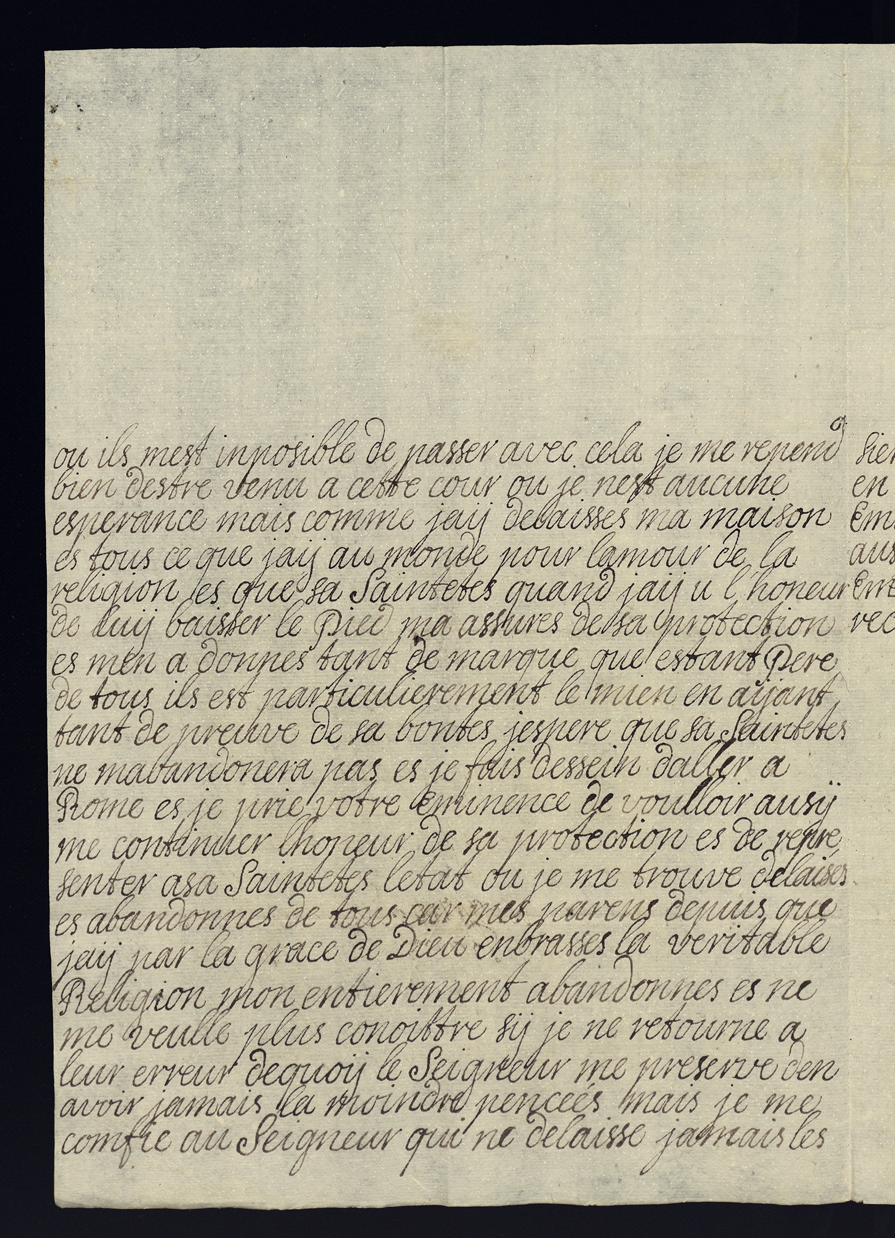 ou ils mest inposible de passer avec cela je me repend
bien destre venu a cette cour ou je nest aucune
esperance mais comme jaij delaisses ma maison
es tous ce que jaij au monde pour lamour de la
religion es que sa Saintetes quand jaij u l'honeur
de luij baisser le Pied ma assures de sa protection
es men a donnes tant de marque que estant Pere
de tous ils est particulierement le mien en aijant
tant de preuve de sa bontes jespere que sa Saintetes
ne mabandonera pas es je fais dessein daller a
Rome es je prie votre Eminence de voulloir ausij
me continuer lhoneur de sa protection es de repre
senter asa Saintetes letat ou je me trouve delaises
es abandonnes de tous car mes parens depuis que
jaij par la grace de Dieu enbrasses la veritable
Religion mon entierement abandonnes es ne
me veulle plus conoittre sij je ne retourne a
leur erreur dequoij le Seigneur me preserve den
avoir jamais la moindre penceés mais je me
comfie au Seigneur qui ne delaisse jamais les
en
rec